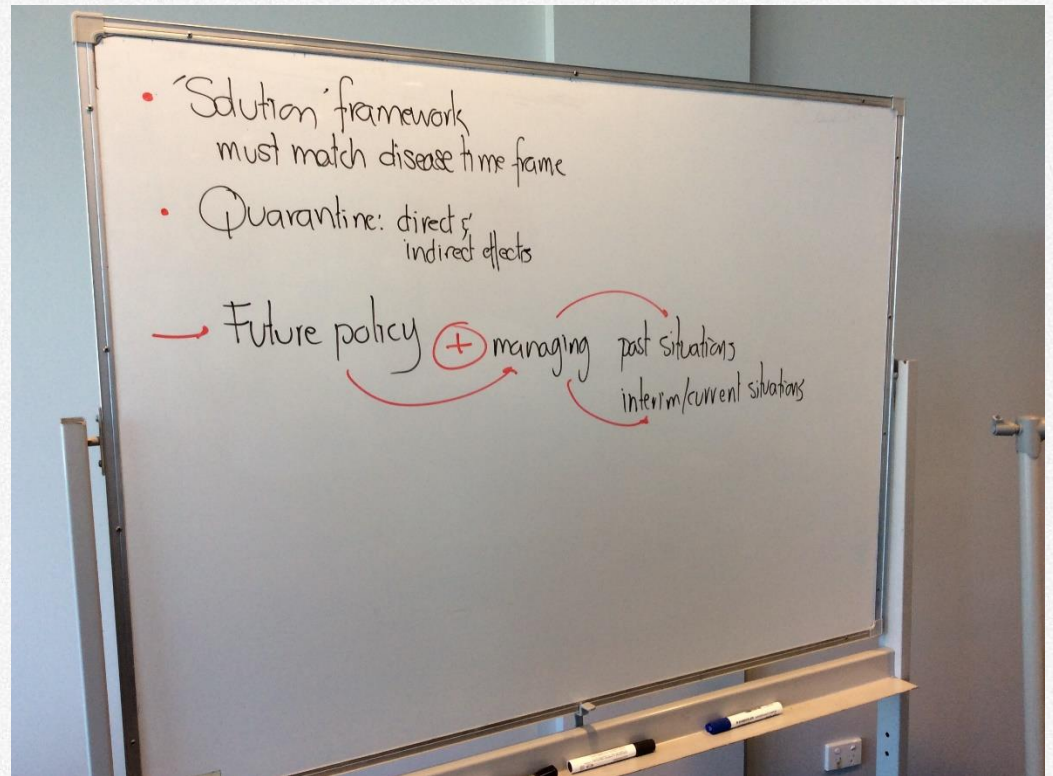 • 'Solution' framework
must match disease time frame
• Quarantine: direct &
indirect effects
→ Future policy + managing past situations
interim/current situations